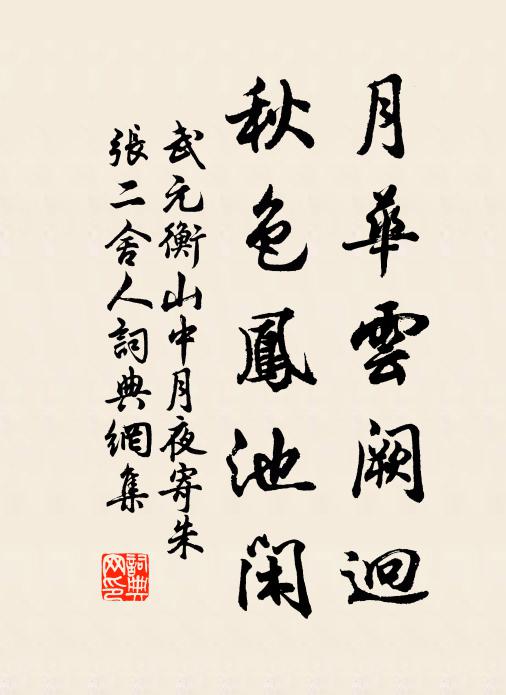 月華雲闕迥
秋色鳳池閑
武元衡山中月夜寄朱
張二舍人詞典網集
詞典
网印